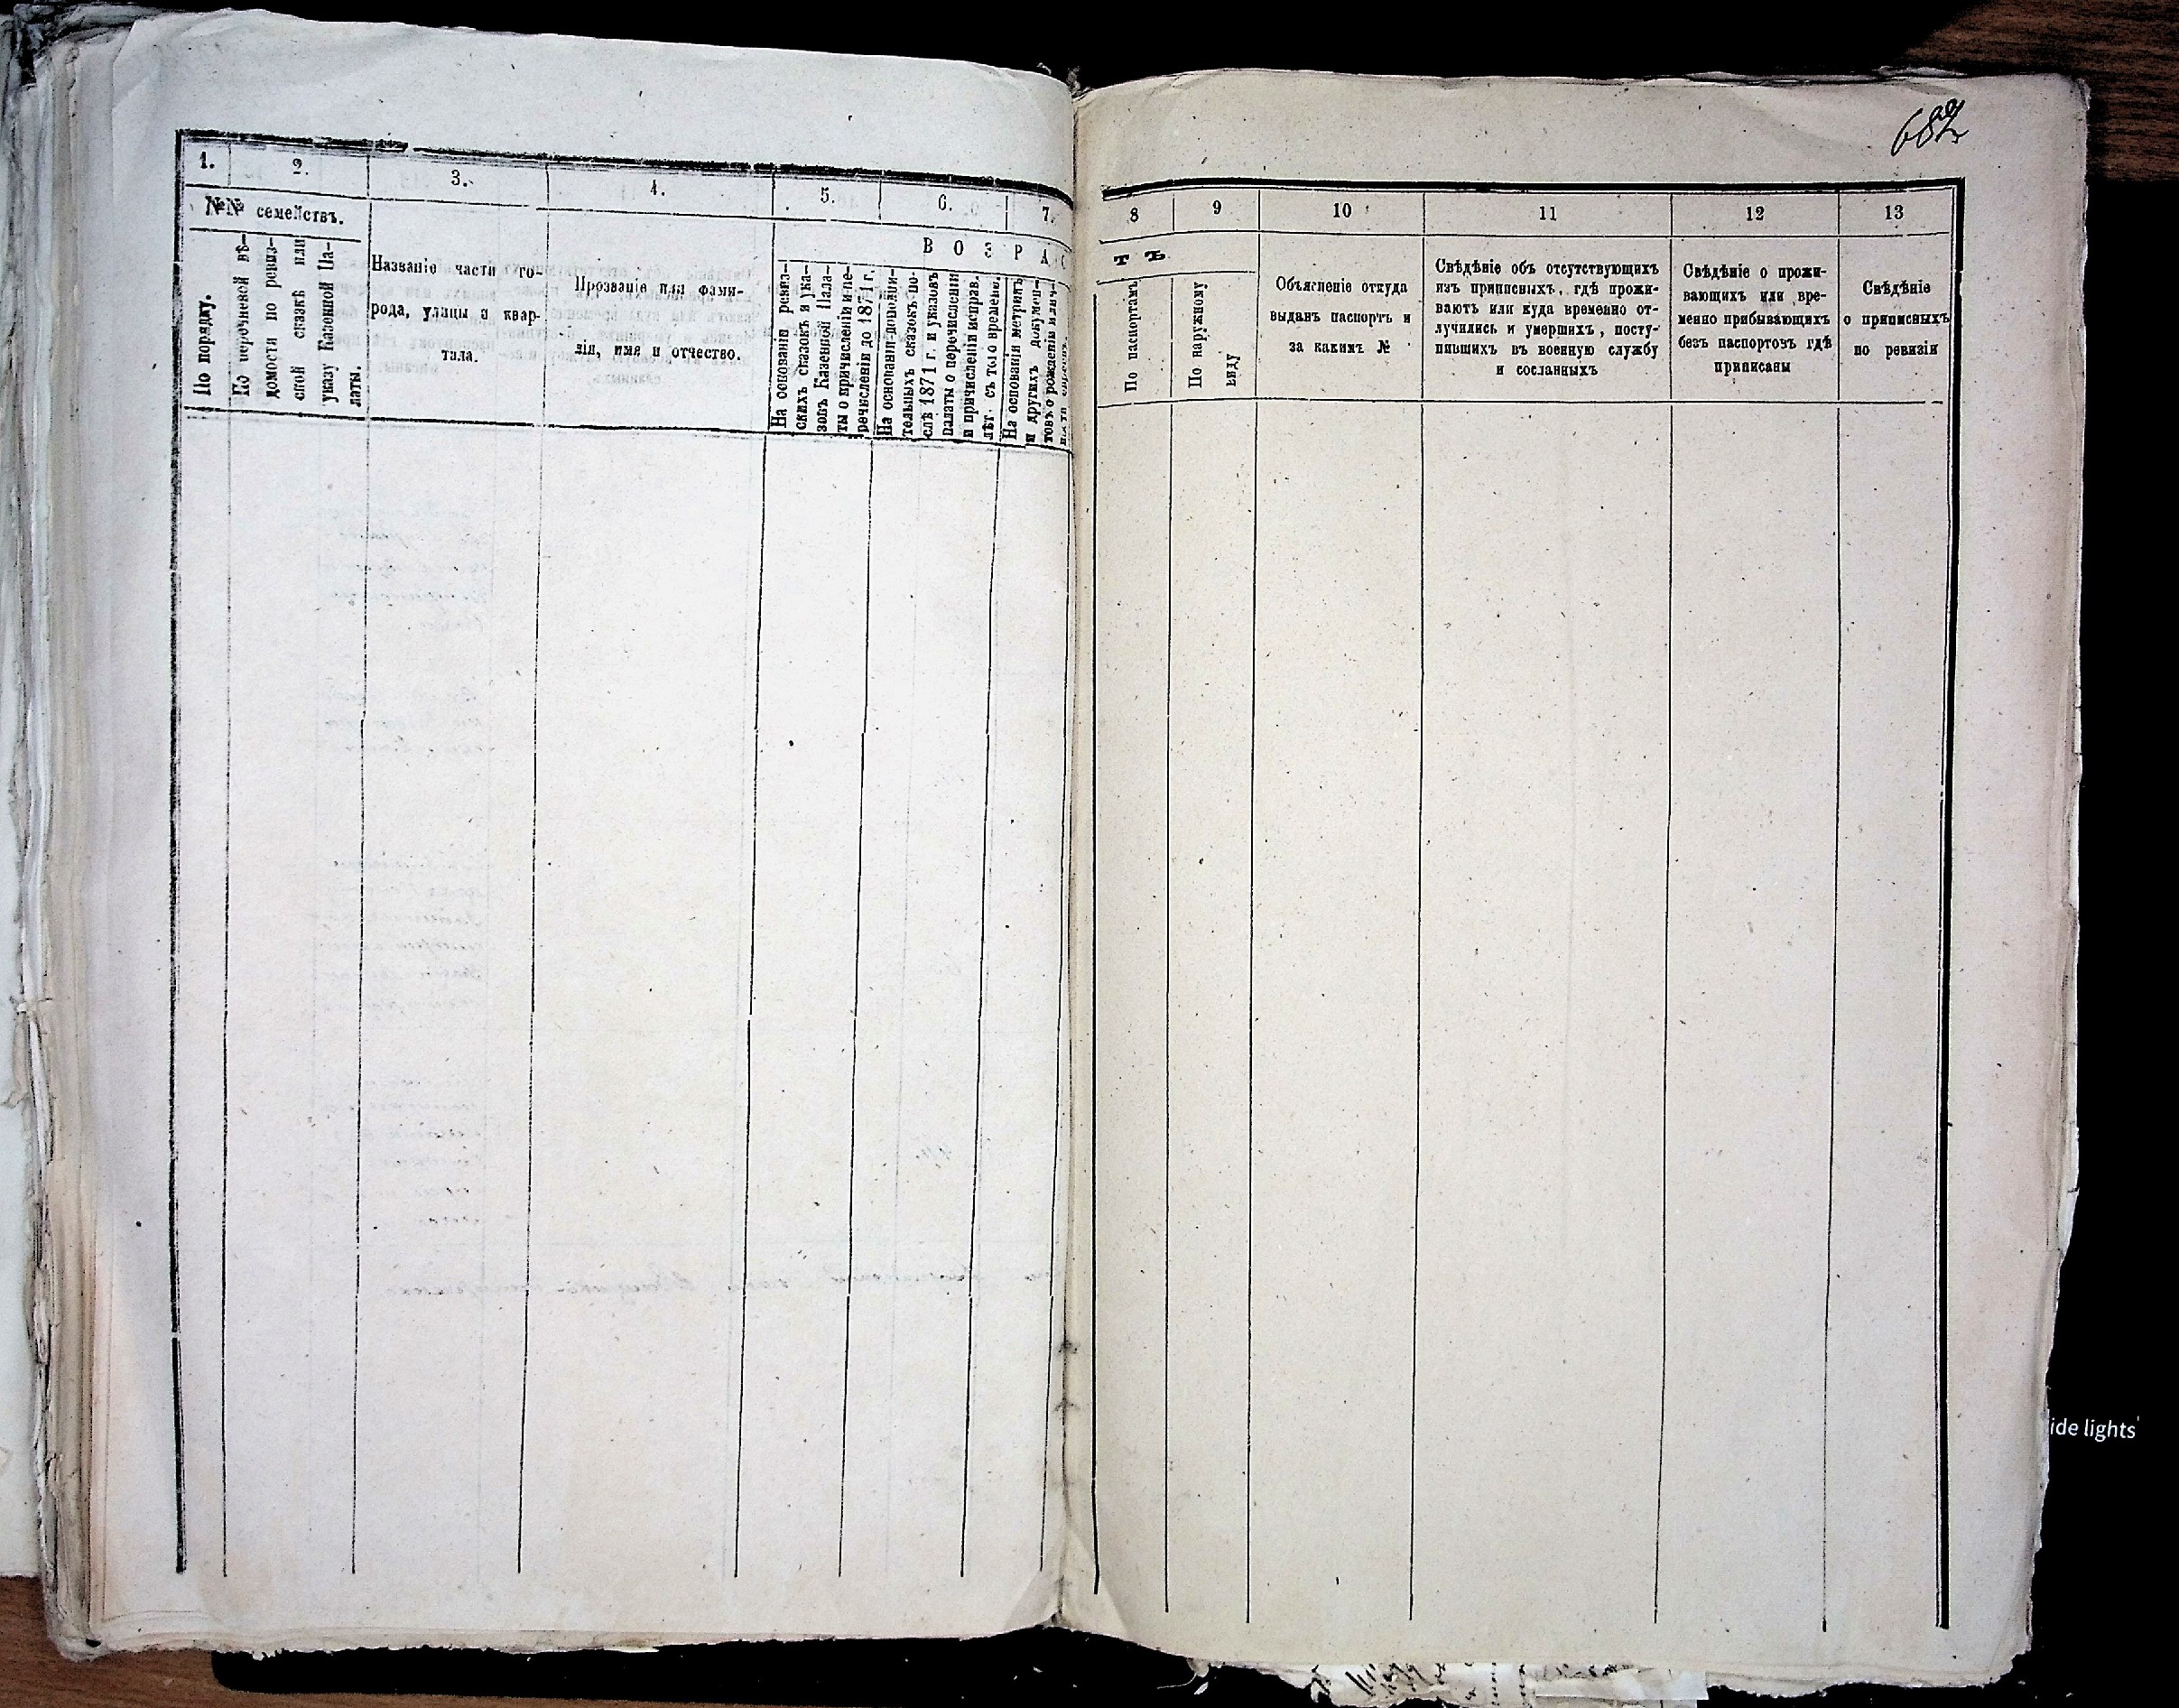 1. 2. 3. 4. 5. 6. 7.
№№ семействъ.
По порядку.
По перечневой вѣ-
домости по ревиз-
ской сказкѣ или
указу Казенной Па-
латы.
Названіе части го-
рода, улицы и квар-
тала.
Прозваніе или фами-
лія, имя и отчество.
В О З Р А С
На основаніи ревиз-
скихъ сказокъ и ука-
зовъ Казенной Пала-
ты о причисленіи и пе-
речисленіи до 1871 г.
На основаніи дополни-
тельныхъ сказокъ по-
слѣ 1871 г. и указовъ
палаты о перечисленіи
и причисленіи исправ.
лѣт. съ того времени.
На основаніи метрикъ
и другихъ докумен-
товъ о рожденіи или
8 9 10 11 12 13
Т Ъ
По паспортамъ
По наружному
виду
Объясненіе откуда
выданъ паспортъ и
за какимъ №
Свѣдѣніе объ отсутствующихъ
изъ приписныхъ, гдѣ прожи-
ваютъ или куда временно от-
лучились и умершихъ, посту-
пившихъ въ военную службу
и сосланныхъ
Свѣдѣніе о прожи-
вающихъ или вре-
менно прибывающихъ
безъ паспортовъ гдѣ
приписаны
Свѣдѣніе
о приписныхъ
по ревизіи
ide lights'